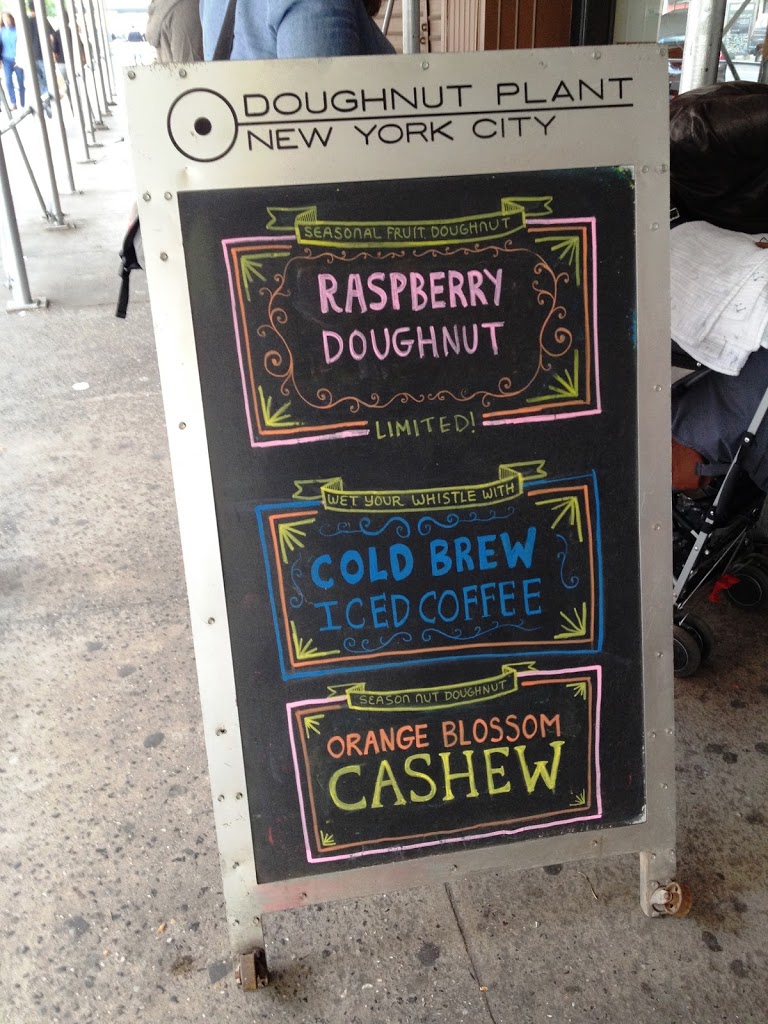 DOUGHNUT PLANT
NEW YORK CITY
SEASONAL FRUIT DOUGHNUT
RASPBERRY
DOUGHNUT
LIMITED!
WET YOUR WHISTLE WITH
COLD BREW
ICED COFFEE
SEASON NUT DOUGHNUT
ORANGE BLOSSOM
CASHEW